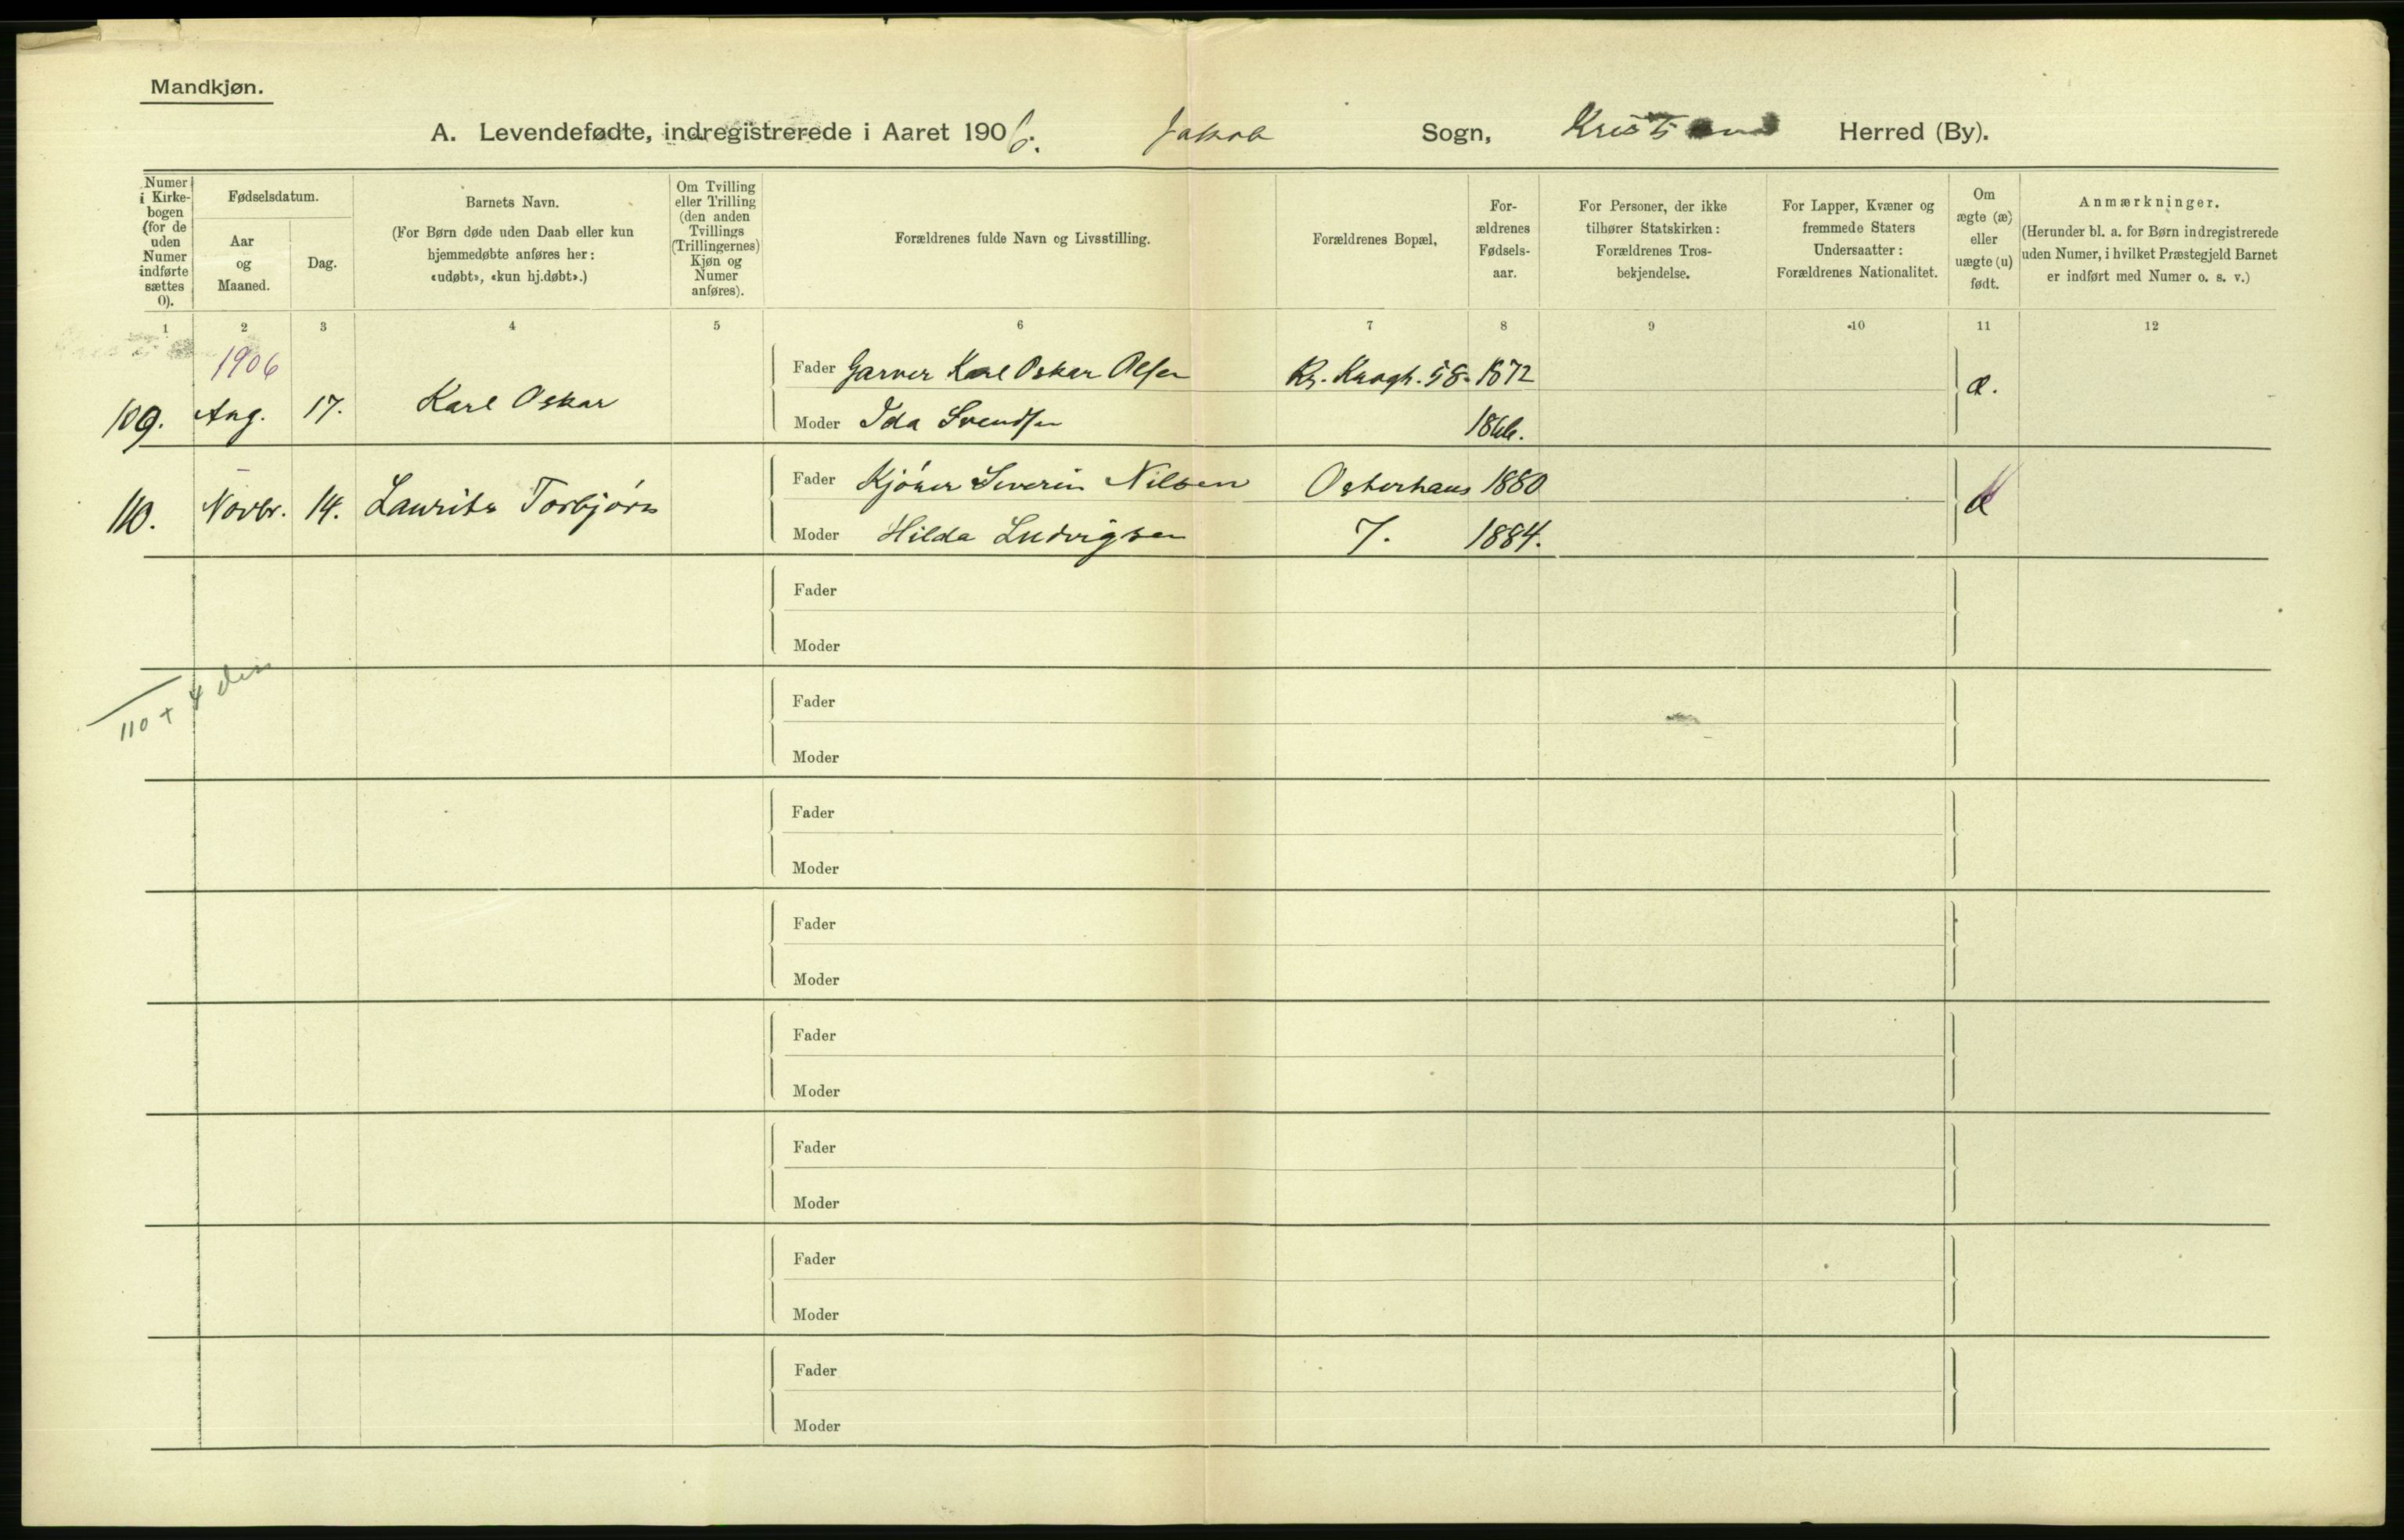 Mandkjøn.
A. Levendefødte, indregistrerede i Aaret 1906. Jakob Sogn, Herred (By).
Numer i Kirkebogen (for de uden Numer indførte sættes 0).
Fødselsdatum.
Aar og Maaned.
Dag.
Barnets Navn.
(For Børn døde uden Daab eller kun hjemmedøbte anføres her: «udøbt», «kun hj.døbt».)
Om Tvilling eller Trilling (den anden Tvillings (Trillingernes) Kjøn og Numer anføres).
Forældrenes fulde Navn og Livsstilling.
Forældrenes Bopæl,
For-ældrenes Fødsels-aar.
For Personer, der ikke tilhører Statskirken: Forældrenes Tros-bekjendelse.
For Lapper, Kvæner og fremmede Staters Undersaatter: Forældrenes Nationalitet.
Om ægte (æ) eller uægte (u) født.
Anmærkninger.
(Herunder bl. a. for Børn indregistrerede uden Numer, i hvilket Præstegjeld Barnet er indført med Numer o. s. v.)
1 2 3 4 5 6 7 8 9 10 11 12
1906
Fader Garver Karl Oskar Olsen Kr. Kroghs. 58. 1872
109. Aug. 17. Karl Oskar æ.
Moder Ida Svendsen 1866.
Fader Kjører Severin Nilsen Osterhaus 1880
110. Novbr. 14. Laurits Torbjørn æ
Moder Hilda Ludvigsen 7. 1884.
Fader
Moder
110 + 4 diss
Fader
Moder
Fader
Moder
Fader
Moder
Fader
Moder
Fader
Moder
Fader
Moder
Fader
Moder